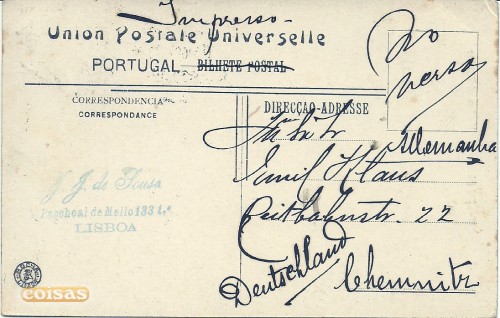 Impresso
Union Postale Universelle
PORTUGAL BILHETE POSTAL
no
verso
CORRESPONDENCIA
CORRESPONDANCE
DIRECÇÃO-ADRESSE
Allemanha
Emil Klaus
22
Deutschland
Chemnitz
J. J. de Sousa
Paschoal de Mello 133 1.º
LISBOA
coisas